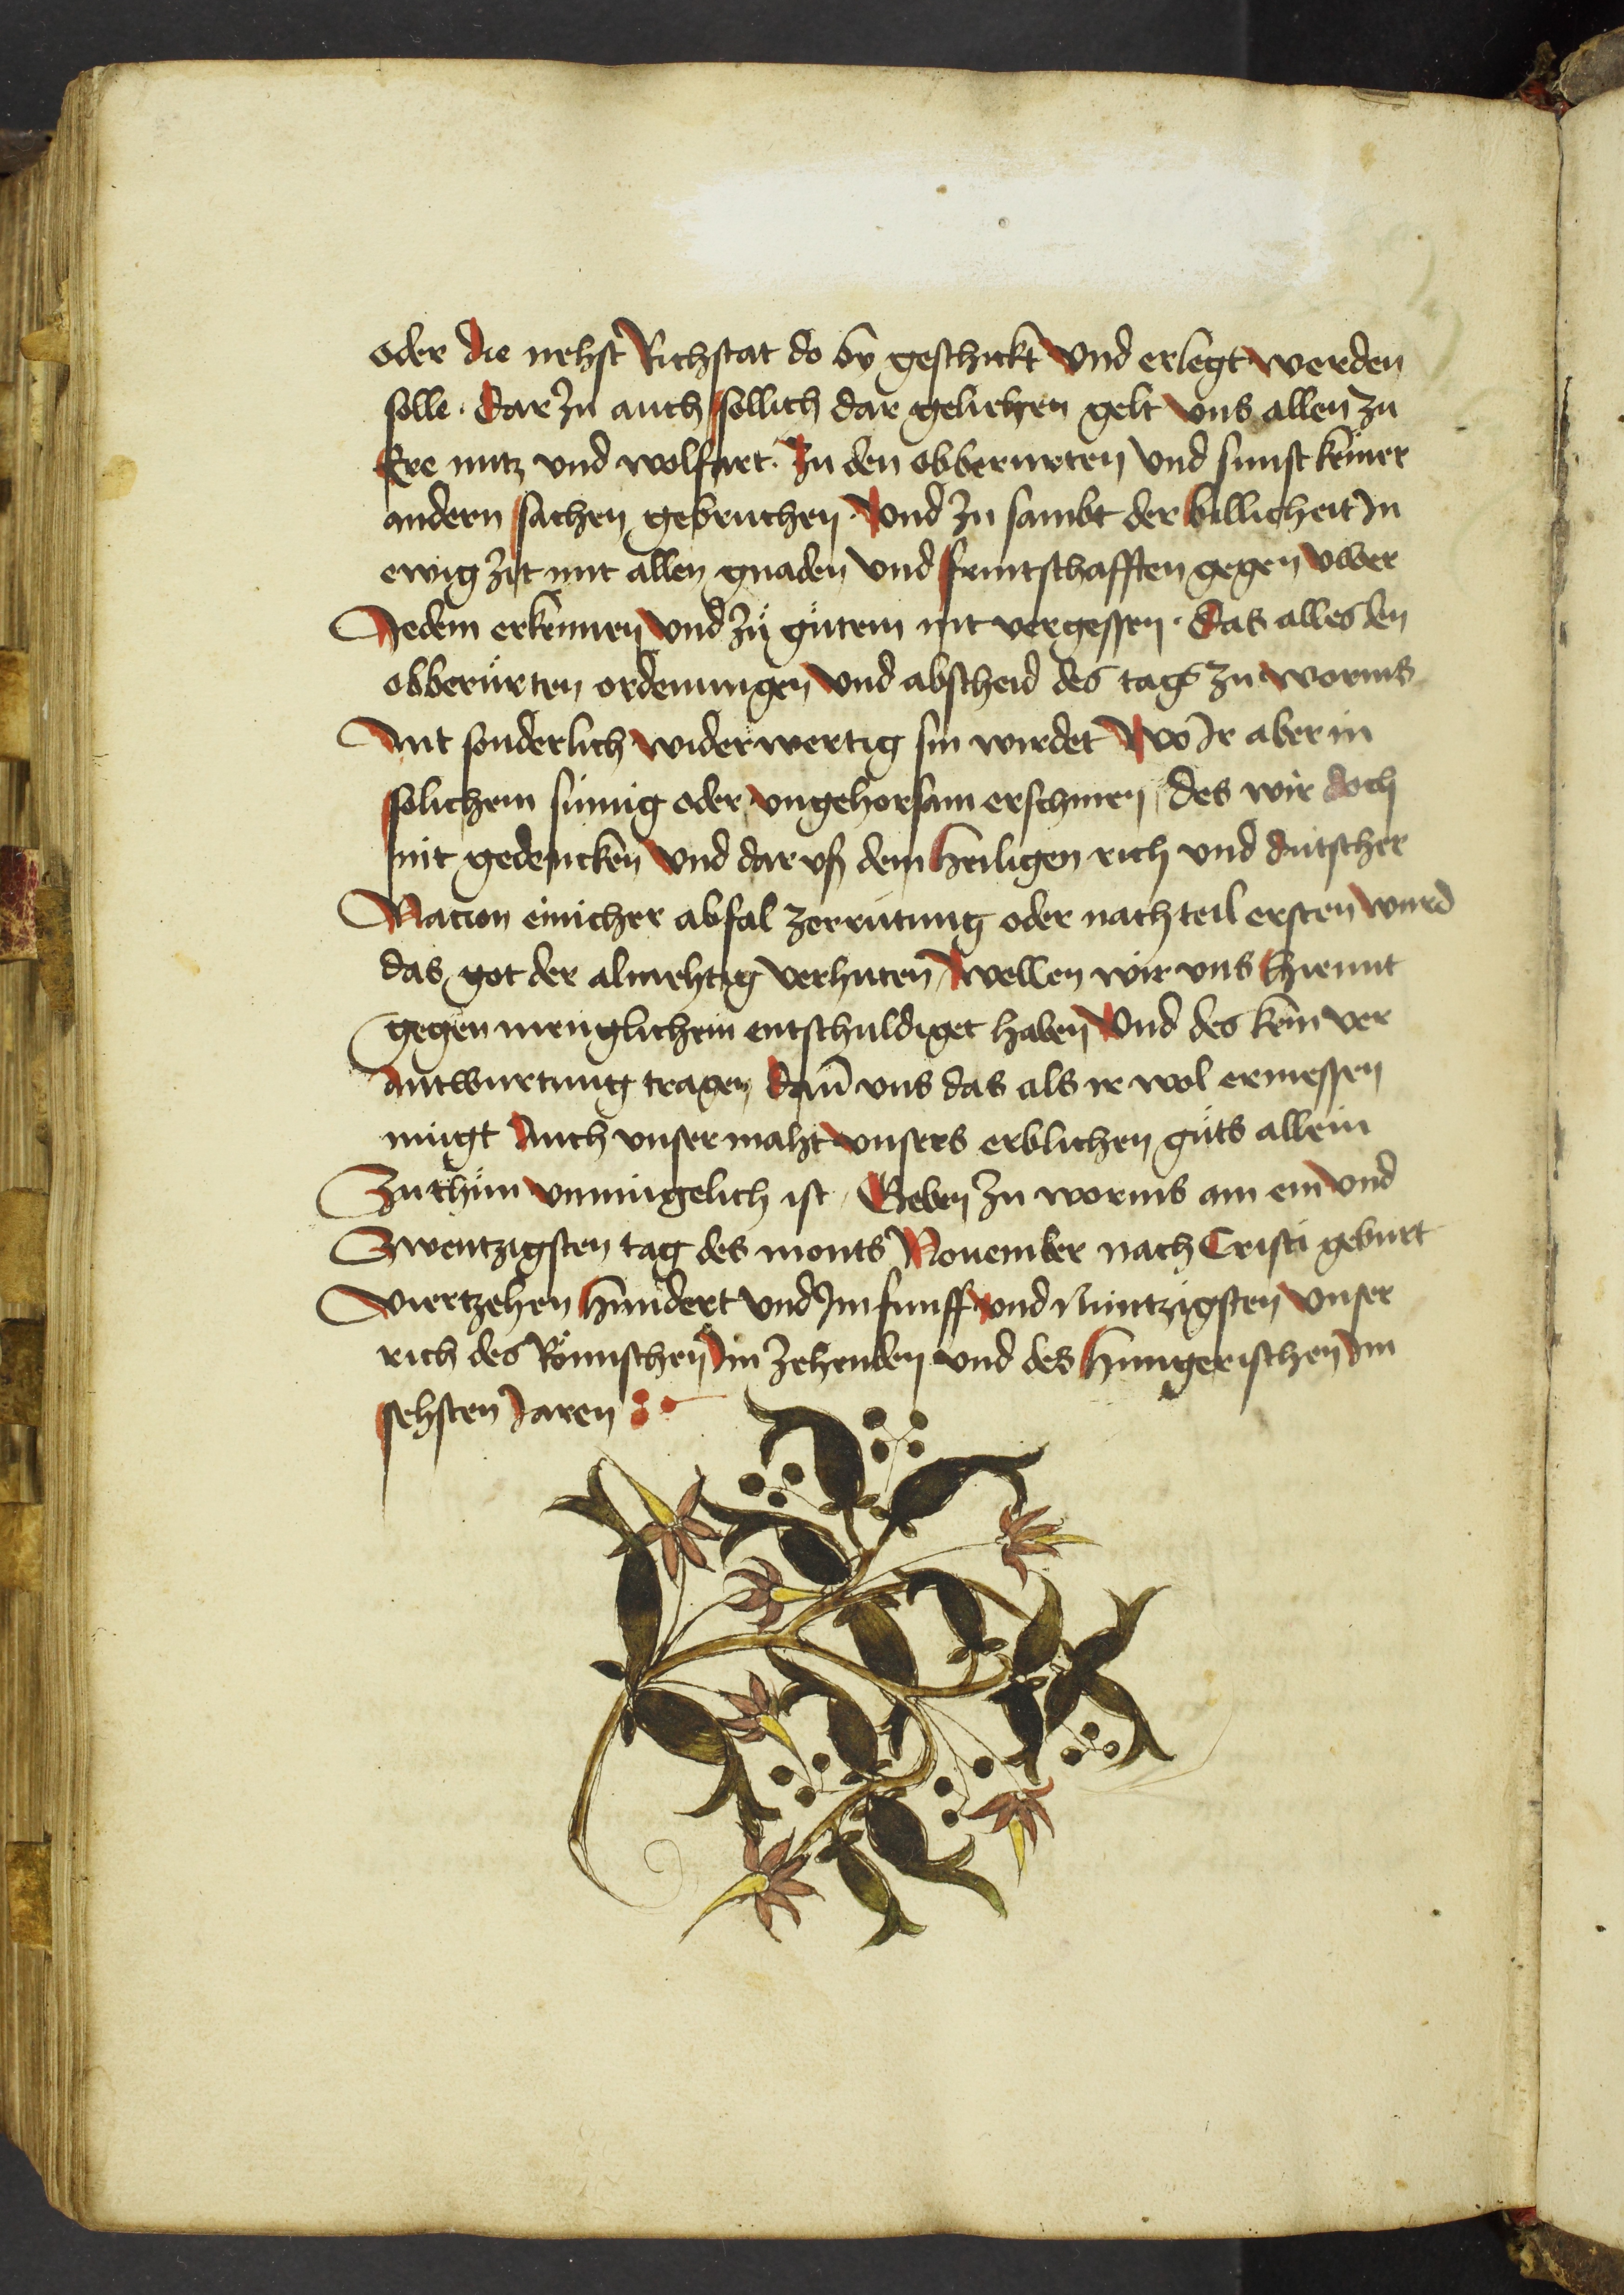 oder die nehst Richstat do by geschickt Und erlegt werden
solle · Dar zu auch sollich dar geliehen gelt uns allen zu
Ere nutz und wolfart · In den obberurten Und sunst keiner
andern sachen gebruchen · Und zu sambt der billicheit In
ewig zit mit allen gnaden Und fruntschafften gegen uwer
Jedem erkennen Und zů gůtem nit vergessen · Das alles den
obberůrten ordenungen Und abscheid des tags zu worms
Nit sonderlich widerwertig sin wirdet Wo Ir aber in
solichem sůmig oder ungehorsam erschinen, des wir doch
nit gedencken Und dar uß dem heiligen rich und dutscher
Nacion einicher abfal zerrutung oder nachteil ersten wurd
das got der almehtig verhuten, Wellen wir uns hiemit
gegen menglichem entschuldiget haben Und des kein ver
antwurtung tragen Dan̄ uns das als ir wol ermessen
mügt Auch unser maht unsers erblichen gůts allein
Zu thůn unmügelich ist, Geben zu worms am ein und
Zwentzigsten tag des monts Nouember nach Cristi geburt
Viertzehen hundert Und Im funff und Nüntzigsten Unser
rich des Römischen Im zehenden und des hungerischen Im
sehsten Jaren